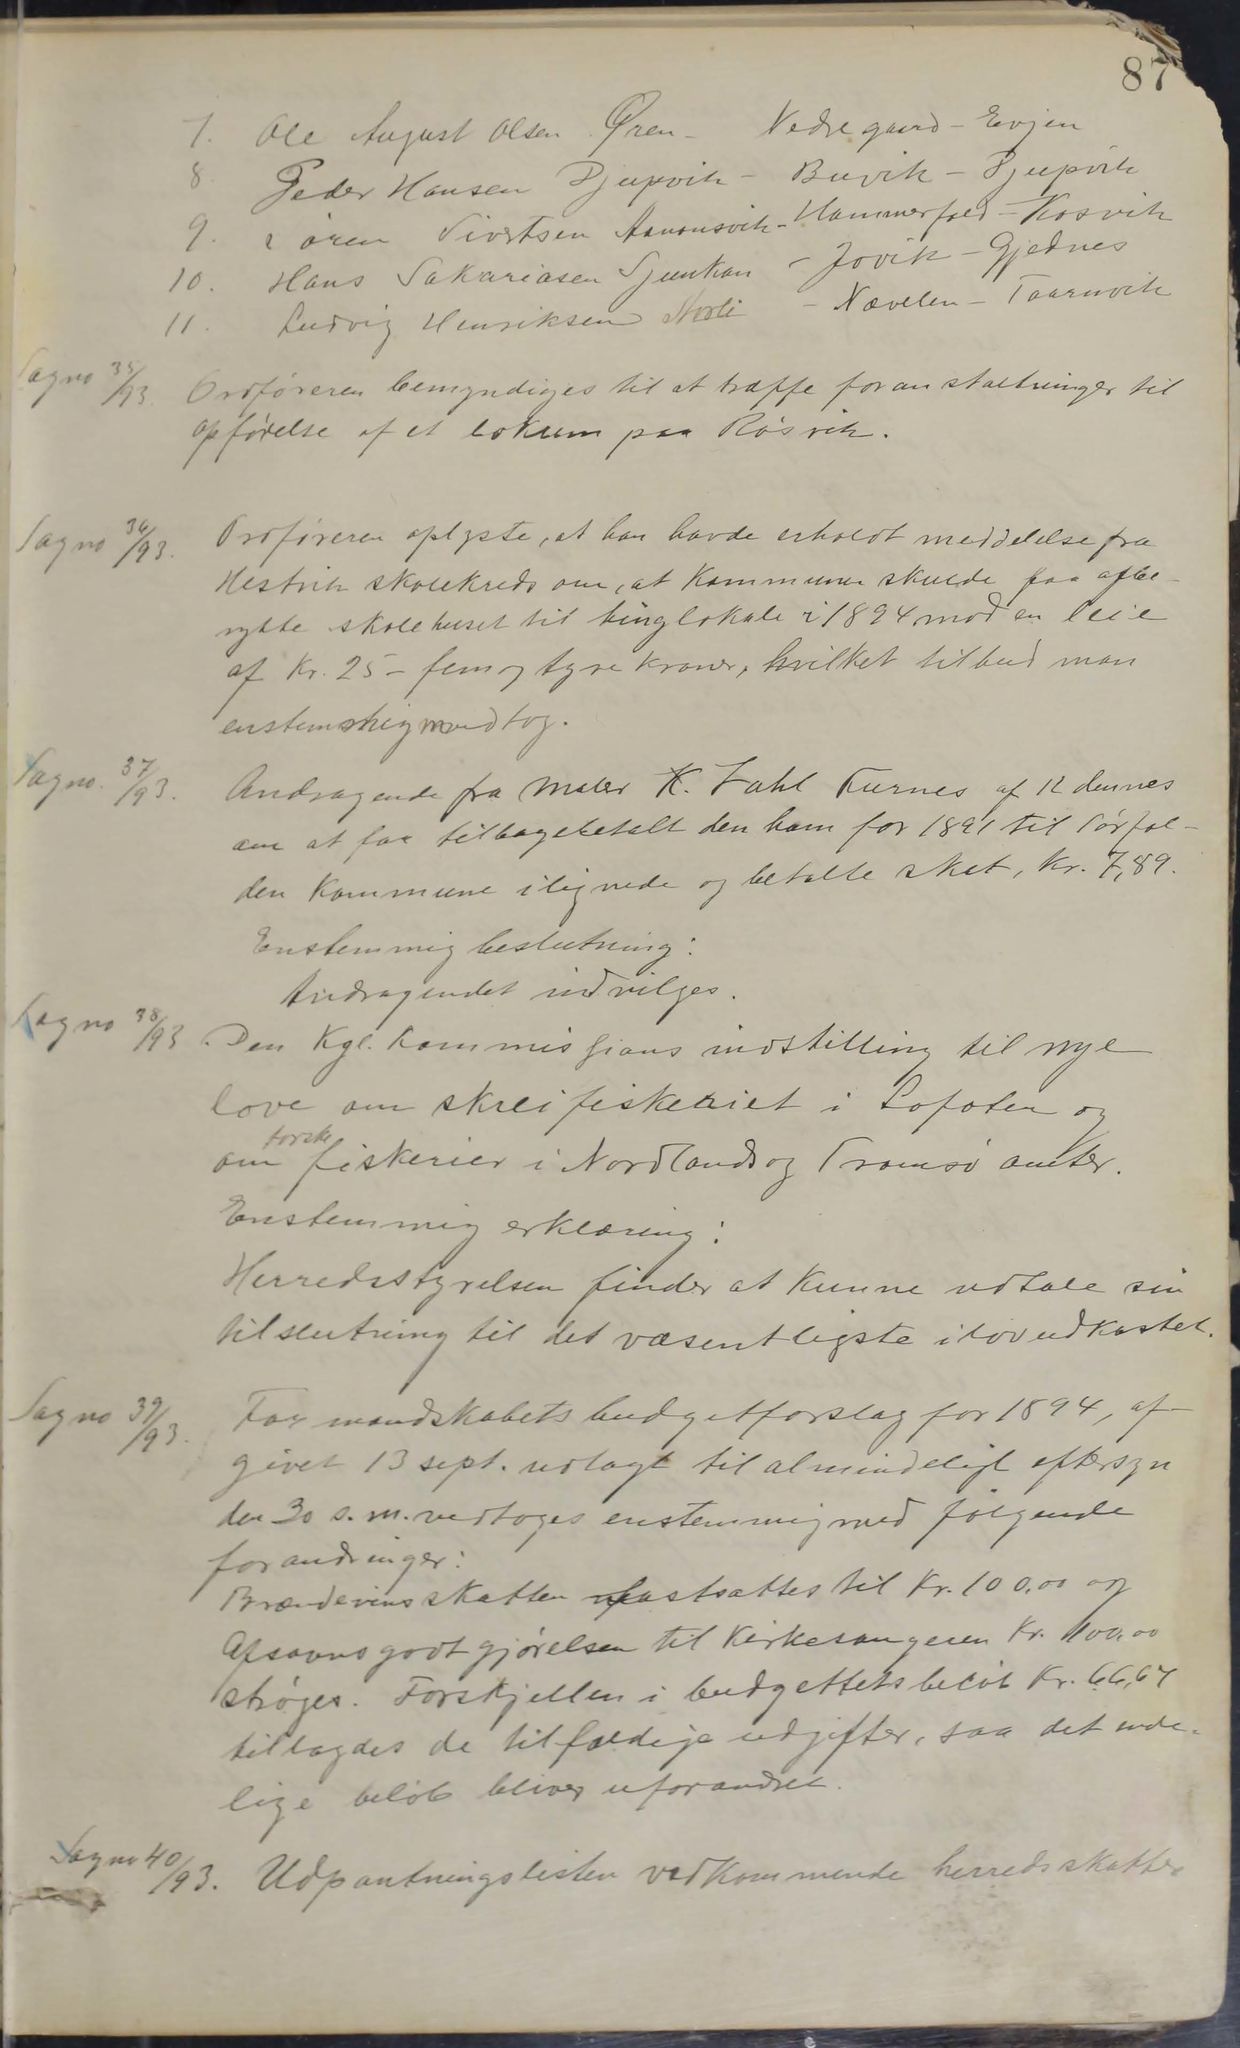 87
7. Ole August Olsen Øren - Nedregaard - Evjen
8. Peder Hansen Djupvik - Buvik - Djupvik
9. Sören Sivertsen Aanonsvik - Hammerfald - Kosvik
10. Hans Sakariasen Sjunkan - Jovik - Gjednes
11. Ludvig Henriksen Norli - Nævelen - Taarnvik
Sagno 35/93. Ordföreren bemyndiges til at træffe foranstaltninger til
opförelse af et lokum paa Rösvik.
Sagno 36/93. Ordföreren oplyste, at han havde erholdt meddelelse fra
Hestvik skolekreds om, at kommunen skulde faa afbe-
nytte skolehuset til tinglokale i 1894 mod en leie
af Kr. 25 - fem og tyve kroner, hvilket tilbud man
enstemmig modtog.
Sagno. 37/93. Andragende fra maler K. Zahl Furnes af 12 dennes
om at faa tilbagebetalt den ham for 1891 til Sörfol-
den kommune ilignede og betalte skat, Kr. 7,89.
Enstemmig beslutning:
Andragendet indvilges.
Sagno 38/93. Den Kgl. kommissions indstilling til nye
love om skreifiskeriet i Lofoten og
om torske fiskerier i Nordlands og Tromsö amter.
Enstemmig erklæring:
Herredsstyrelsen finder at kunne udtale sin
tilslutning til det væsentligste i lovudkastet.
Sagno 39/93. Formandskabets budgetforslag for 1894, af-
givet 13 sept. udlagt til almindeligt eftersyn
den 30 s.m. vedtoges enstemmig med fölgende
forandringer:
Brændevinsskatten fastsattes til Kr. 100.00 og
Afsavnsgodtgjörelsen til Kirkesangeren Kr. 100.00
ströges. Forskjellen i budgettets belöb Kr. 66,67
tillagdes de tilfældige udgifter, saa det ende-
lige belöb bliver uforandret.
Sagno 40/93. Udpantningslisten vedkommende herredsskatte-